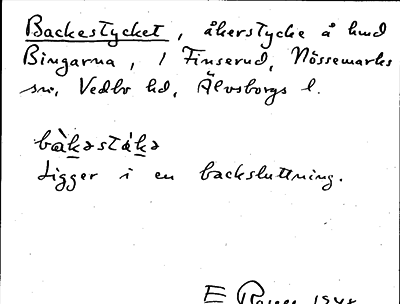 Backestycket, åkerstycke å hmd
Bingarna, 1 Finserud, Nössemarks
sn, Vedbo hd, Älvsborgs l.
bàkəstákə
Ligger i en backsluttning.
E